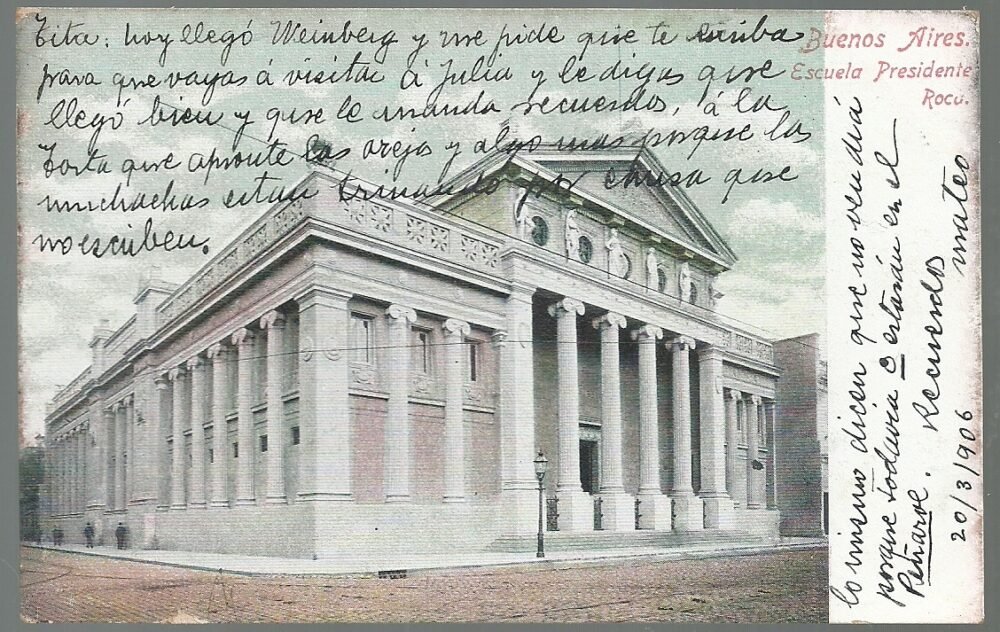 Tita: hoy llegó Weinberg y me pide que te escriba
para que vayas á visitar á Julia y le digas que
llegó bien y que le manda recuerdos, á la
Tosta que apronte las orejas y algo mas porque las
muchachas estan trinando por causa que
no escriben.
Buenos Aires.
Escuela Presidente
Roca.
lo mismo dicen que no vendrá
porque todavia estarán en el
Peñarol. Recuerdos mateo
20/3/906